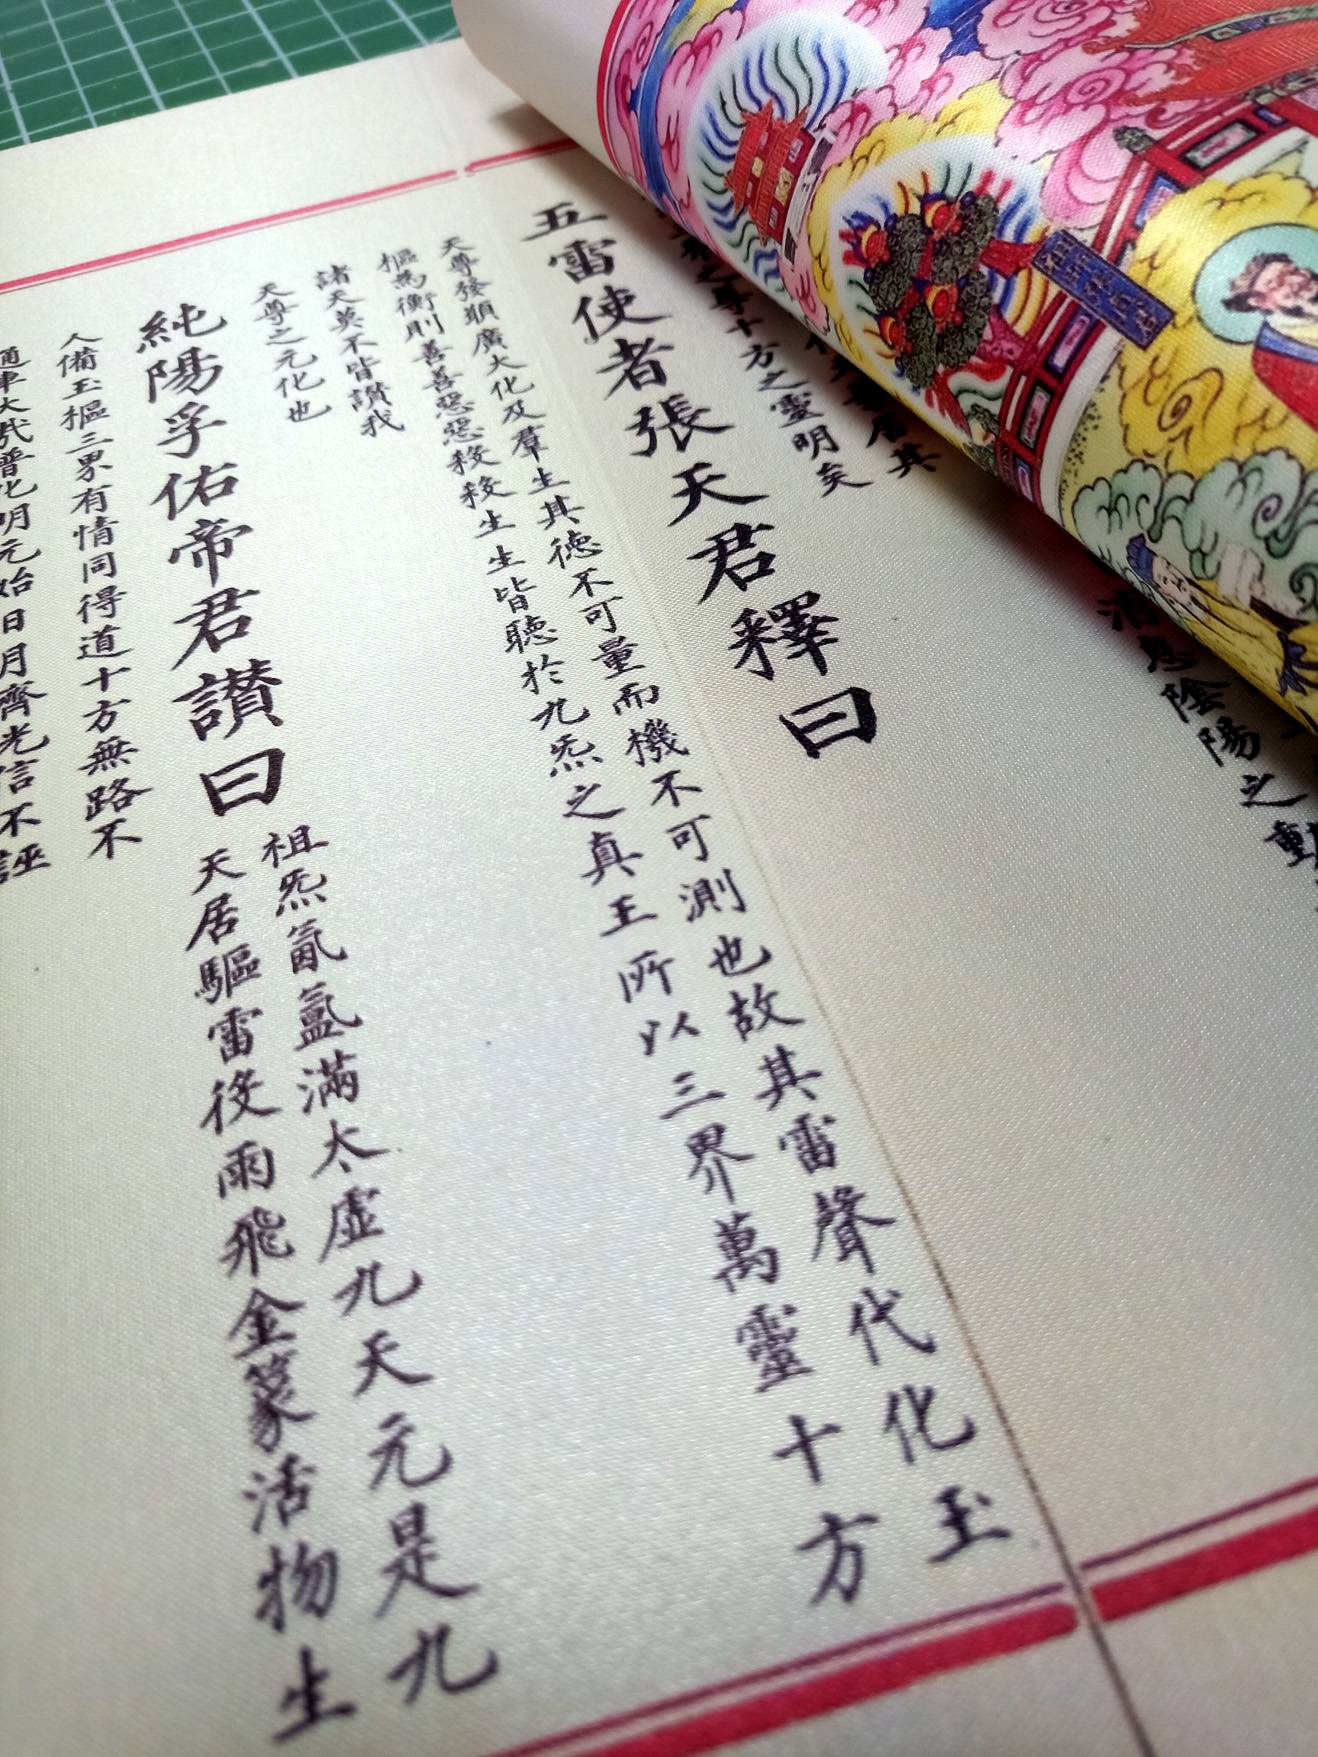 消息陰陽之
居其
之尊十方之靈明矣
五雷使者張天君釋曰
天尊發願廣大化及羣生其德不可量而機不可測也故其雷聲代化玉
樞為衡則善善惡惡殺殺生生皆聽於九炁之真王所以三界萬靈十方
諸天莫不皆讃我
天尊之元化也
純陽孚佑帝君讃曰
祖炁氤氳滿太虛九天元是九
天居驅雷役雨飛金篆活物生
人備玉樞三界有情同得道十方無路不
通車大哉普化明元始日月齊光信不誣